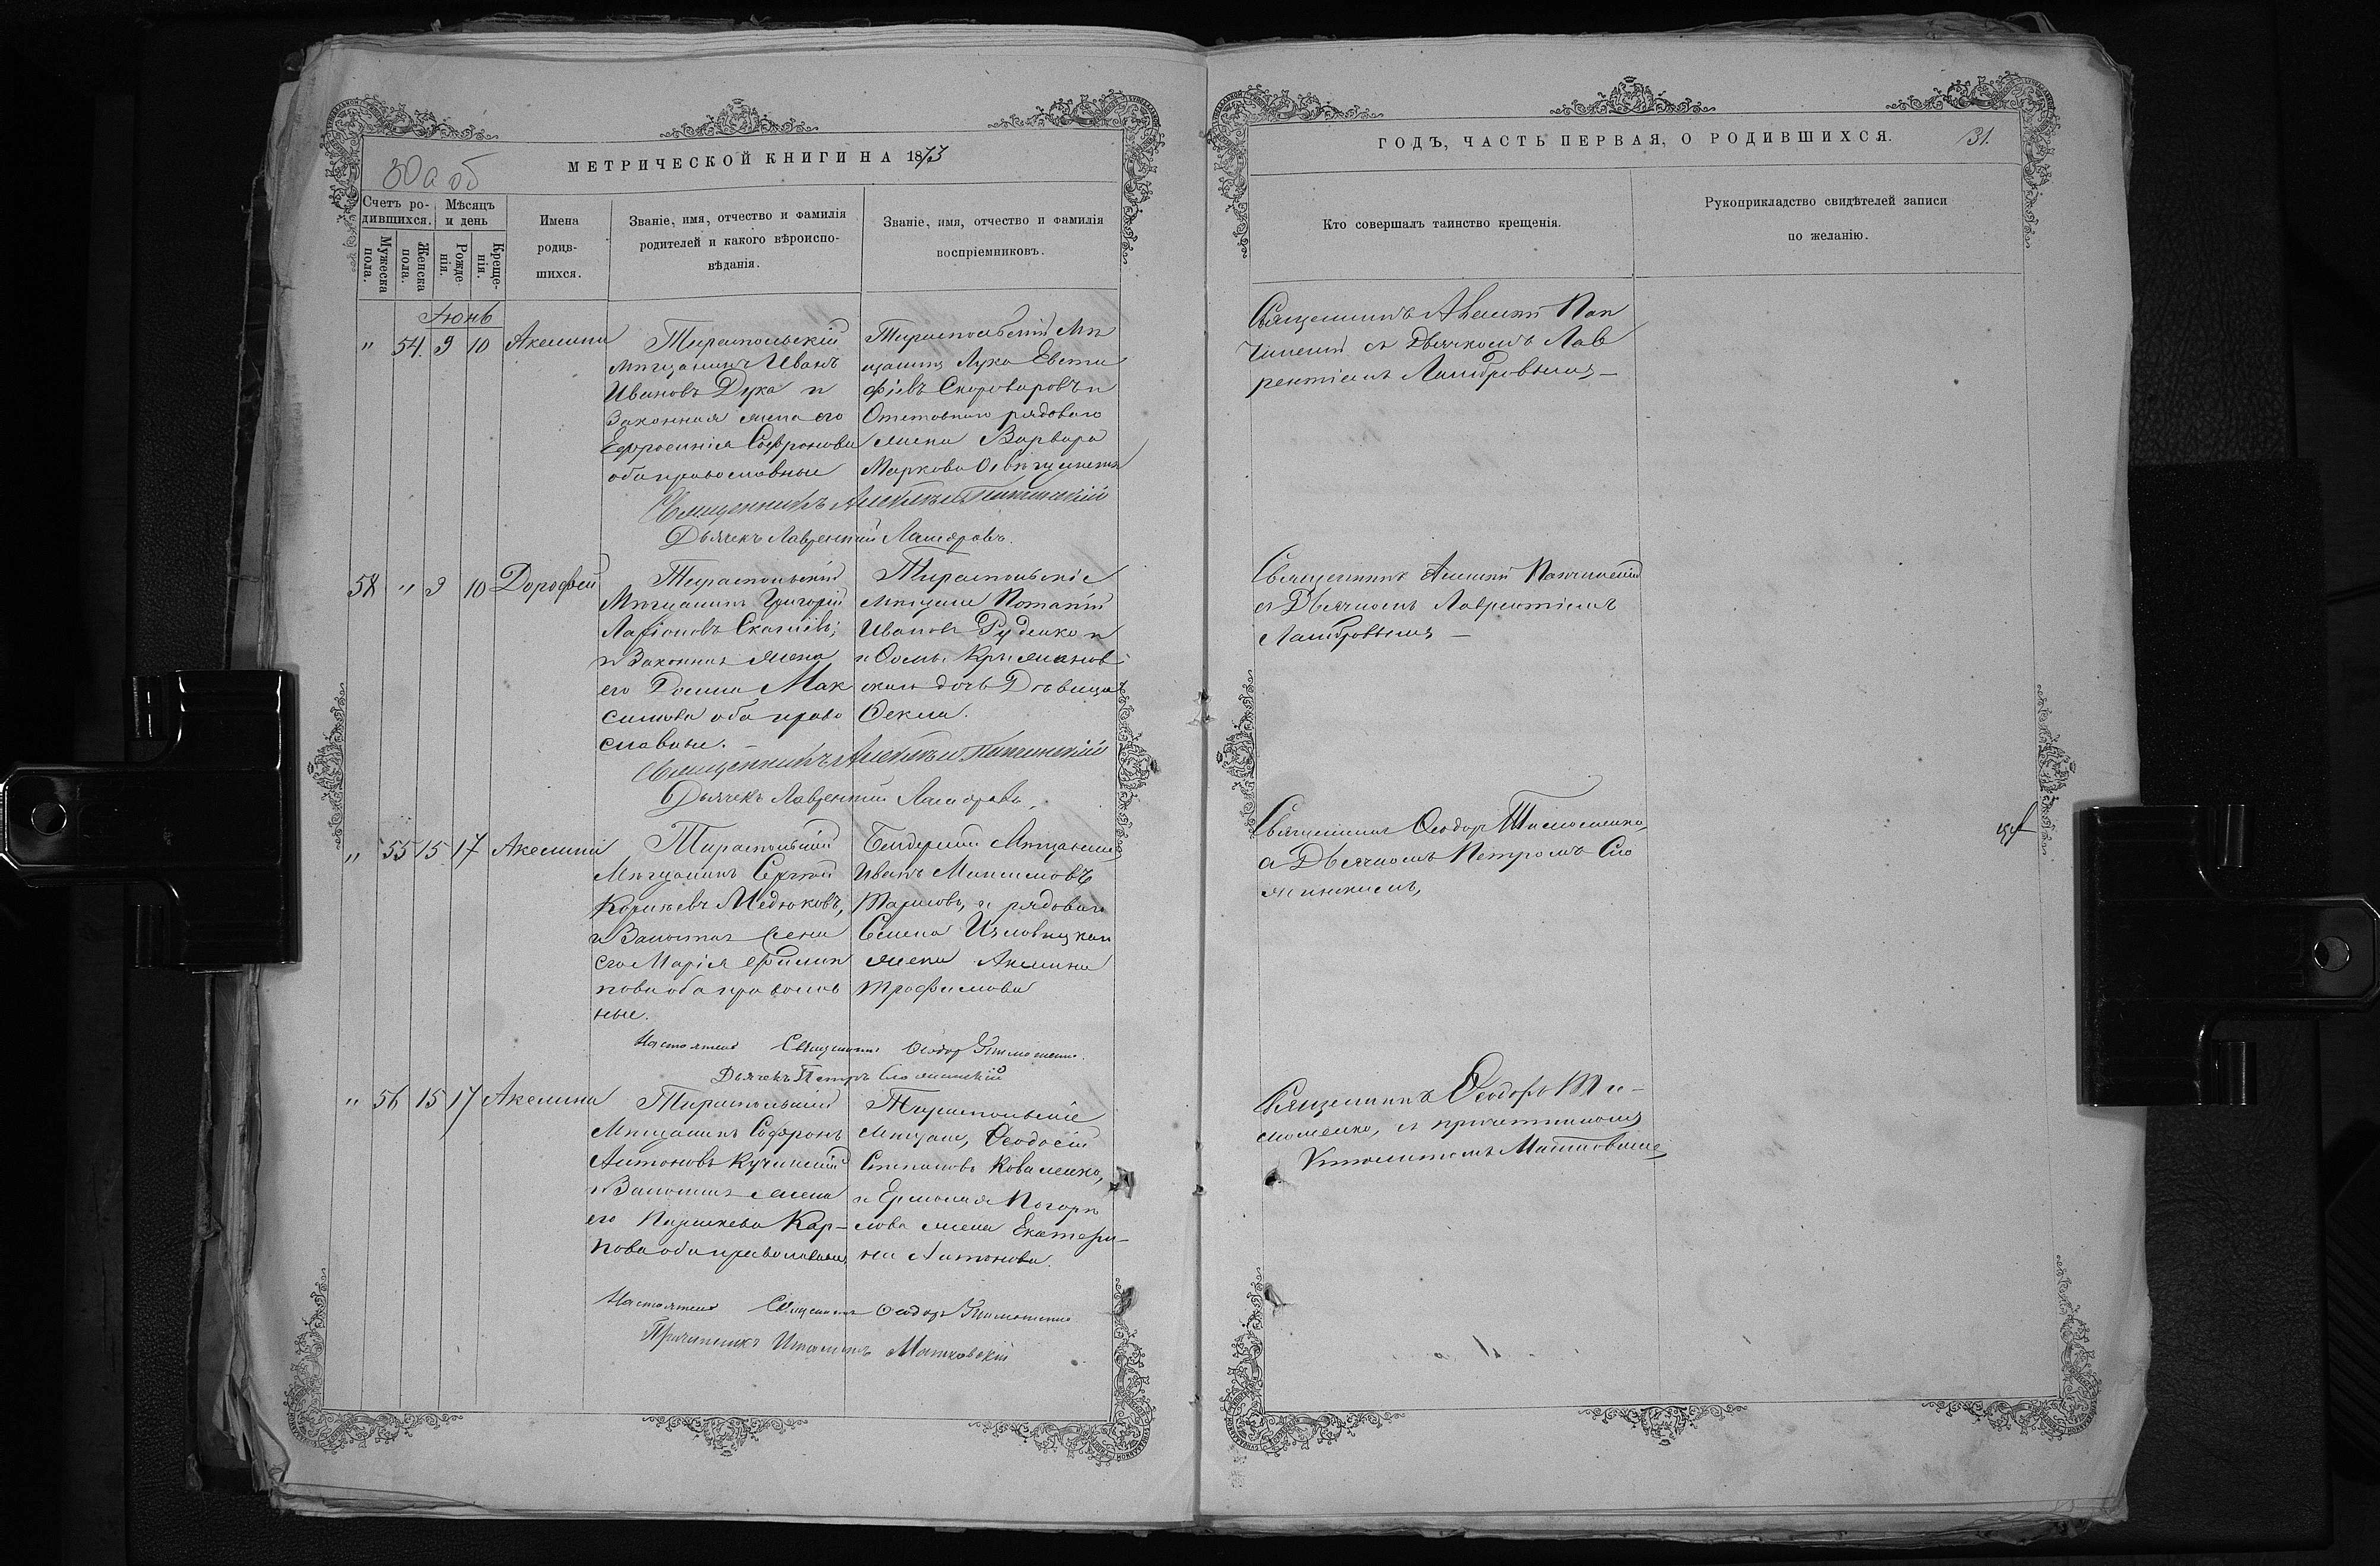 МЕТРИЧЕСКОЙ КНИГИ НА 1873
30а об
Счетъ ро-
дившихся.
Мѣсяцъ
и день
Мужеска
пола.
Женска
пола.
Рожде
нія.
Креще-
нія.
Имена
родив-
шихся.
Званіе, имя, отчество и фамилія
родителей и какого вѣроиспо-
вѣданія.
Званіе, имя, отчество и фамилія
воспріемниковъ.
Іюнь
" 54. 9 10 Акелина
Тираспольскій
мѣщанинъ Иванъ
Ивановъ Дука и
Законная жена его
Ефросинія Софронова
оба православные
Тираспольскій Мѣ
щанинъ Лука Евти
фіевъ Скороваровъ и
Отставнаго рядоваго
жена Варвара
Маркова
Священникъ Алексѣй
Дьячекъ Лаврентій
58 " 9 10 Дорофей
Тираспольскій
Мѣщанинъ Григорій
Ларіоновъ
и Законная жена
его Домна Мак
симова оба право
славные.
Тираспольскіе
мѣщане Потапій
Ивановъ Руденко и
и Ѳомы Крыжанов
скаго дочь Дѣвица
Ѳекла.
Священникъ Алексѣй
Дьячекъ Лаврентій
" 55 15 17 Акелина
Тираспольскій
Мѣщанинъ Сергѣй
Корнѣевъ Медюковъ,
и Законная жена
его Марія Филип
пова оба православ
ные.
Бендерскій Мѣщанинъ
Иванъ Максимовъ
и рядоваго
Семена
жена Акелина
Трофимова
Настоятель Священникъ Ѳеодоръ Тимошенко.
Дьячекъ Петръ
" 56 15 17 Акелина
Тираспольскій
Мѣщанинъ Софронъ
Антоновъ Кучинскій
и Законная жена
его Параскева Кар-
пова оба православные,
Тираспольскіе
мѣщане, Ѳеодосій
Степановъ Коваленко,
и Ермолая Погорѣ
лова жена Екатери-
на Антонова.
Настоятель Священникъ Ѳеодоръ Тимошенко
Причетникъ Матковскій
ГОДЪ, ЧАСТЬ ПЕРВАЯ, О РОДИВШИХСЯ.
31.
Кто совершалъ таинство крещенія.
Рукоприкладство свидѣтелей записи
по желанію.
Священникъ Алексѣй
съ Дьячкомъ Лав
рентіемъ
Священникъ Алексѣй
съ Дьячкомъ Лаврентіемъ
Священникъ Ѳеодоръ Тимошенко,
съ Дьячкомъ Петромъ
Священникъ Ѳеодоръ Ти-
мошенко, съ причетникомъ